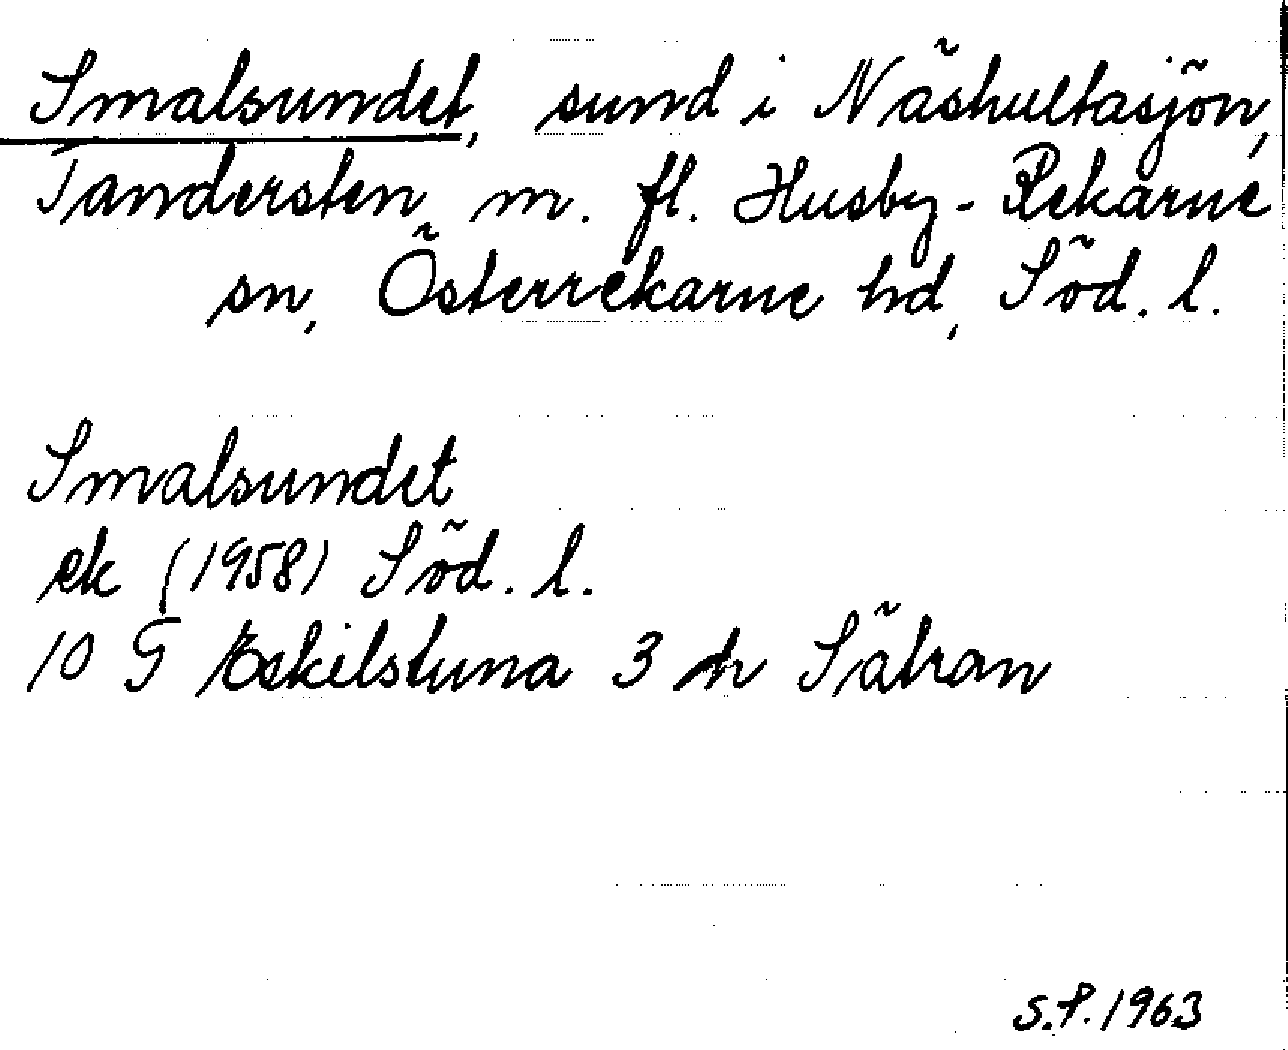 Smalsundet, sund i Näshultasjön,
Tandersten m. fl. Husby-Rekarne
sn, Österrekarne hd, Söd. l.
Smalsundet
ek (1958) Söd. l.
10 G Eskilstuna 3 h Sätran
S.P. 1963